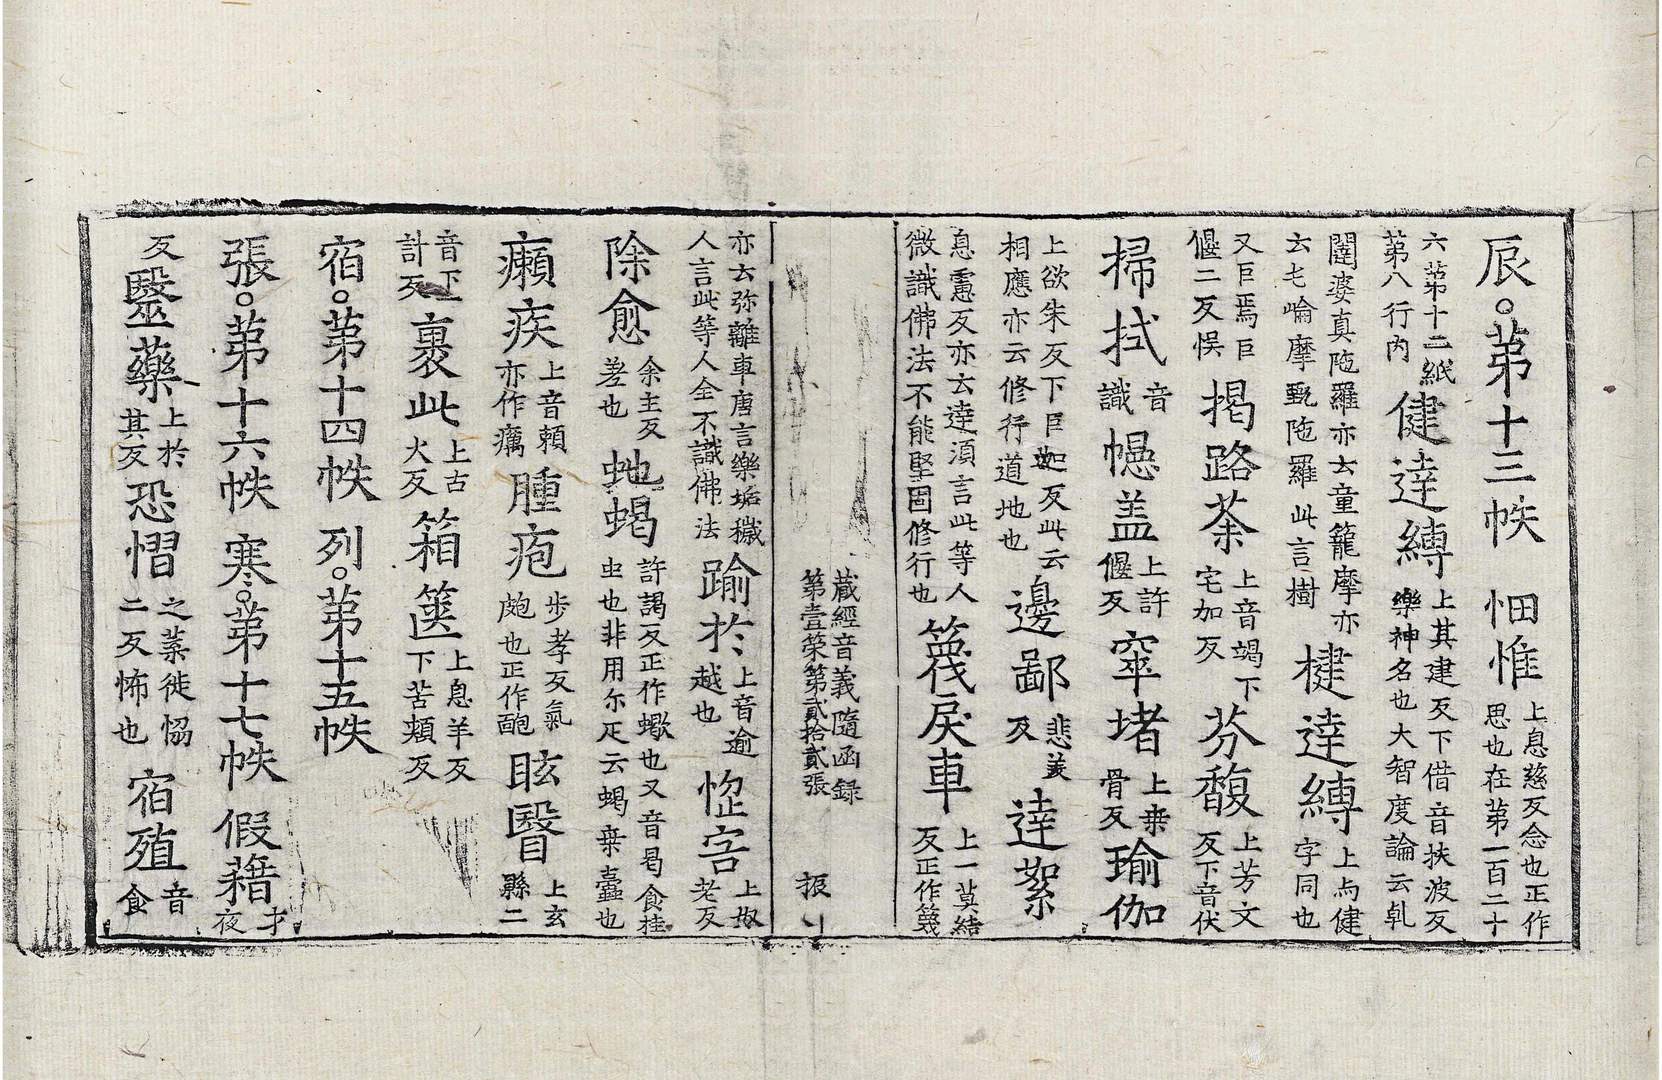 辰。苐十三帙 㤙惟上息慈反念也正作思也在苐一百二十
六苐十二紙苐八行內健逹縛上其建反下借音扶波反樂神名也大智度論云乹
闥婆真陁羅亦云童籠摩亦云乇崘摩甄陁羅此言樹揵逹縛上与健字同也
又巨焉巨偃二反悮揭路荼上音竭下宅加反芬馥上芳文反下音伏
掃拭音識幰盖上許偃反窣堵上桒骨反瑜伽
上欲朱反下巨迦反此云相應亦云修行道地也邊鄙悲美反逹絮
息慮反亦云逹湏言此等人微識佛法不能堅固修行也篾戾車上一莫結反正作篾
藏經音義隨函録第壹筞第貳拾貳張 振
亦云弥離車唐言樂垢穢人言此等人全不識佛法踰於上音逾越也惛宻上㧑老反
除愈余主反差也虵蝎許謁反正作蠍也又音曷食桂虫也非用尓疋云蝎桒蠧也
癩疾上音頼亦作癘腫疱步孝反氣皰也正作皰眩瞖上玄縣二
音下計反裹此上古火反箱篋上息羊反下苦頰反
宿。苐十四帙 列。苐十五帙
張。苐十六帙 寒。苐十七帙 假藉才夜
反毉藥上於其反恐慴之葉徙恊二反怖也宿殖音食